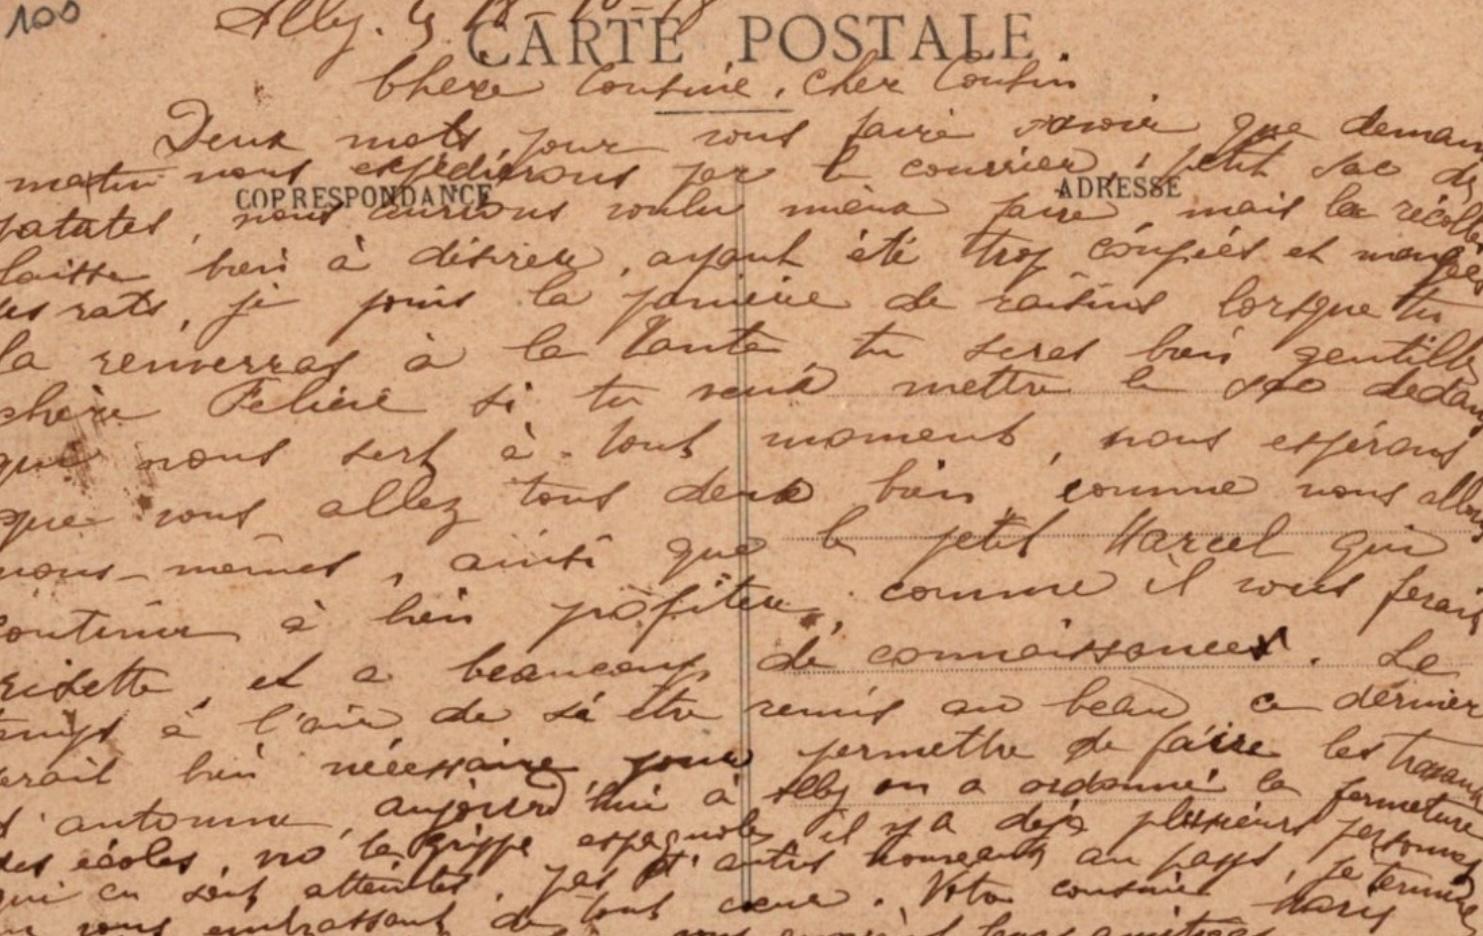 100
Alby. le 18-10-18
CARTE POSTALE.
Chere Cousine, cher Cousin
Deux mots pour vous faire savoir que demain
matin nous expédierons par le courrier, petit sac de
CORRESPONDANCE
ADRESSE
patates, nous aurions voulu mieux faire, mais la récolte
laisse bien à désirer, ayant été trop coupiés et mangées
des rats, je joins la panière de raisins lorsque tu
la renverras à la Tante, tu seras bien gentille
chère Felicie si tu veux mettre le sac dedans
qui nous sert à tout moment, nous espérons
que vous allez tous deux bien comme nous allons
nous-mêmes, ainsi que le petit Marcel qui
continue à bien profiter, comme il vous ferait
risette, et a beaucoup de connaissances. Le
temps à l'air de sé être remis au beau ce dernier
serait bien nécessaire pour permettre de faire les travaux
d'automne, aujourd'hui à Alby on a ordonné la fermeture
des écoles, vu la grippe espagnole, il y a déjà plusieurs personnes
qui en sont atteintes. pas d'autres nouveaux au pays, je termine
en vous embrassant de tout cœur. Votre cousine Mary
vous envoient leurs amitiés